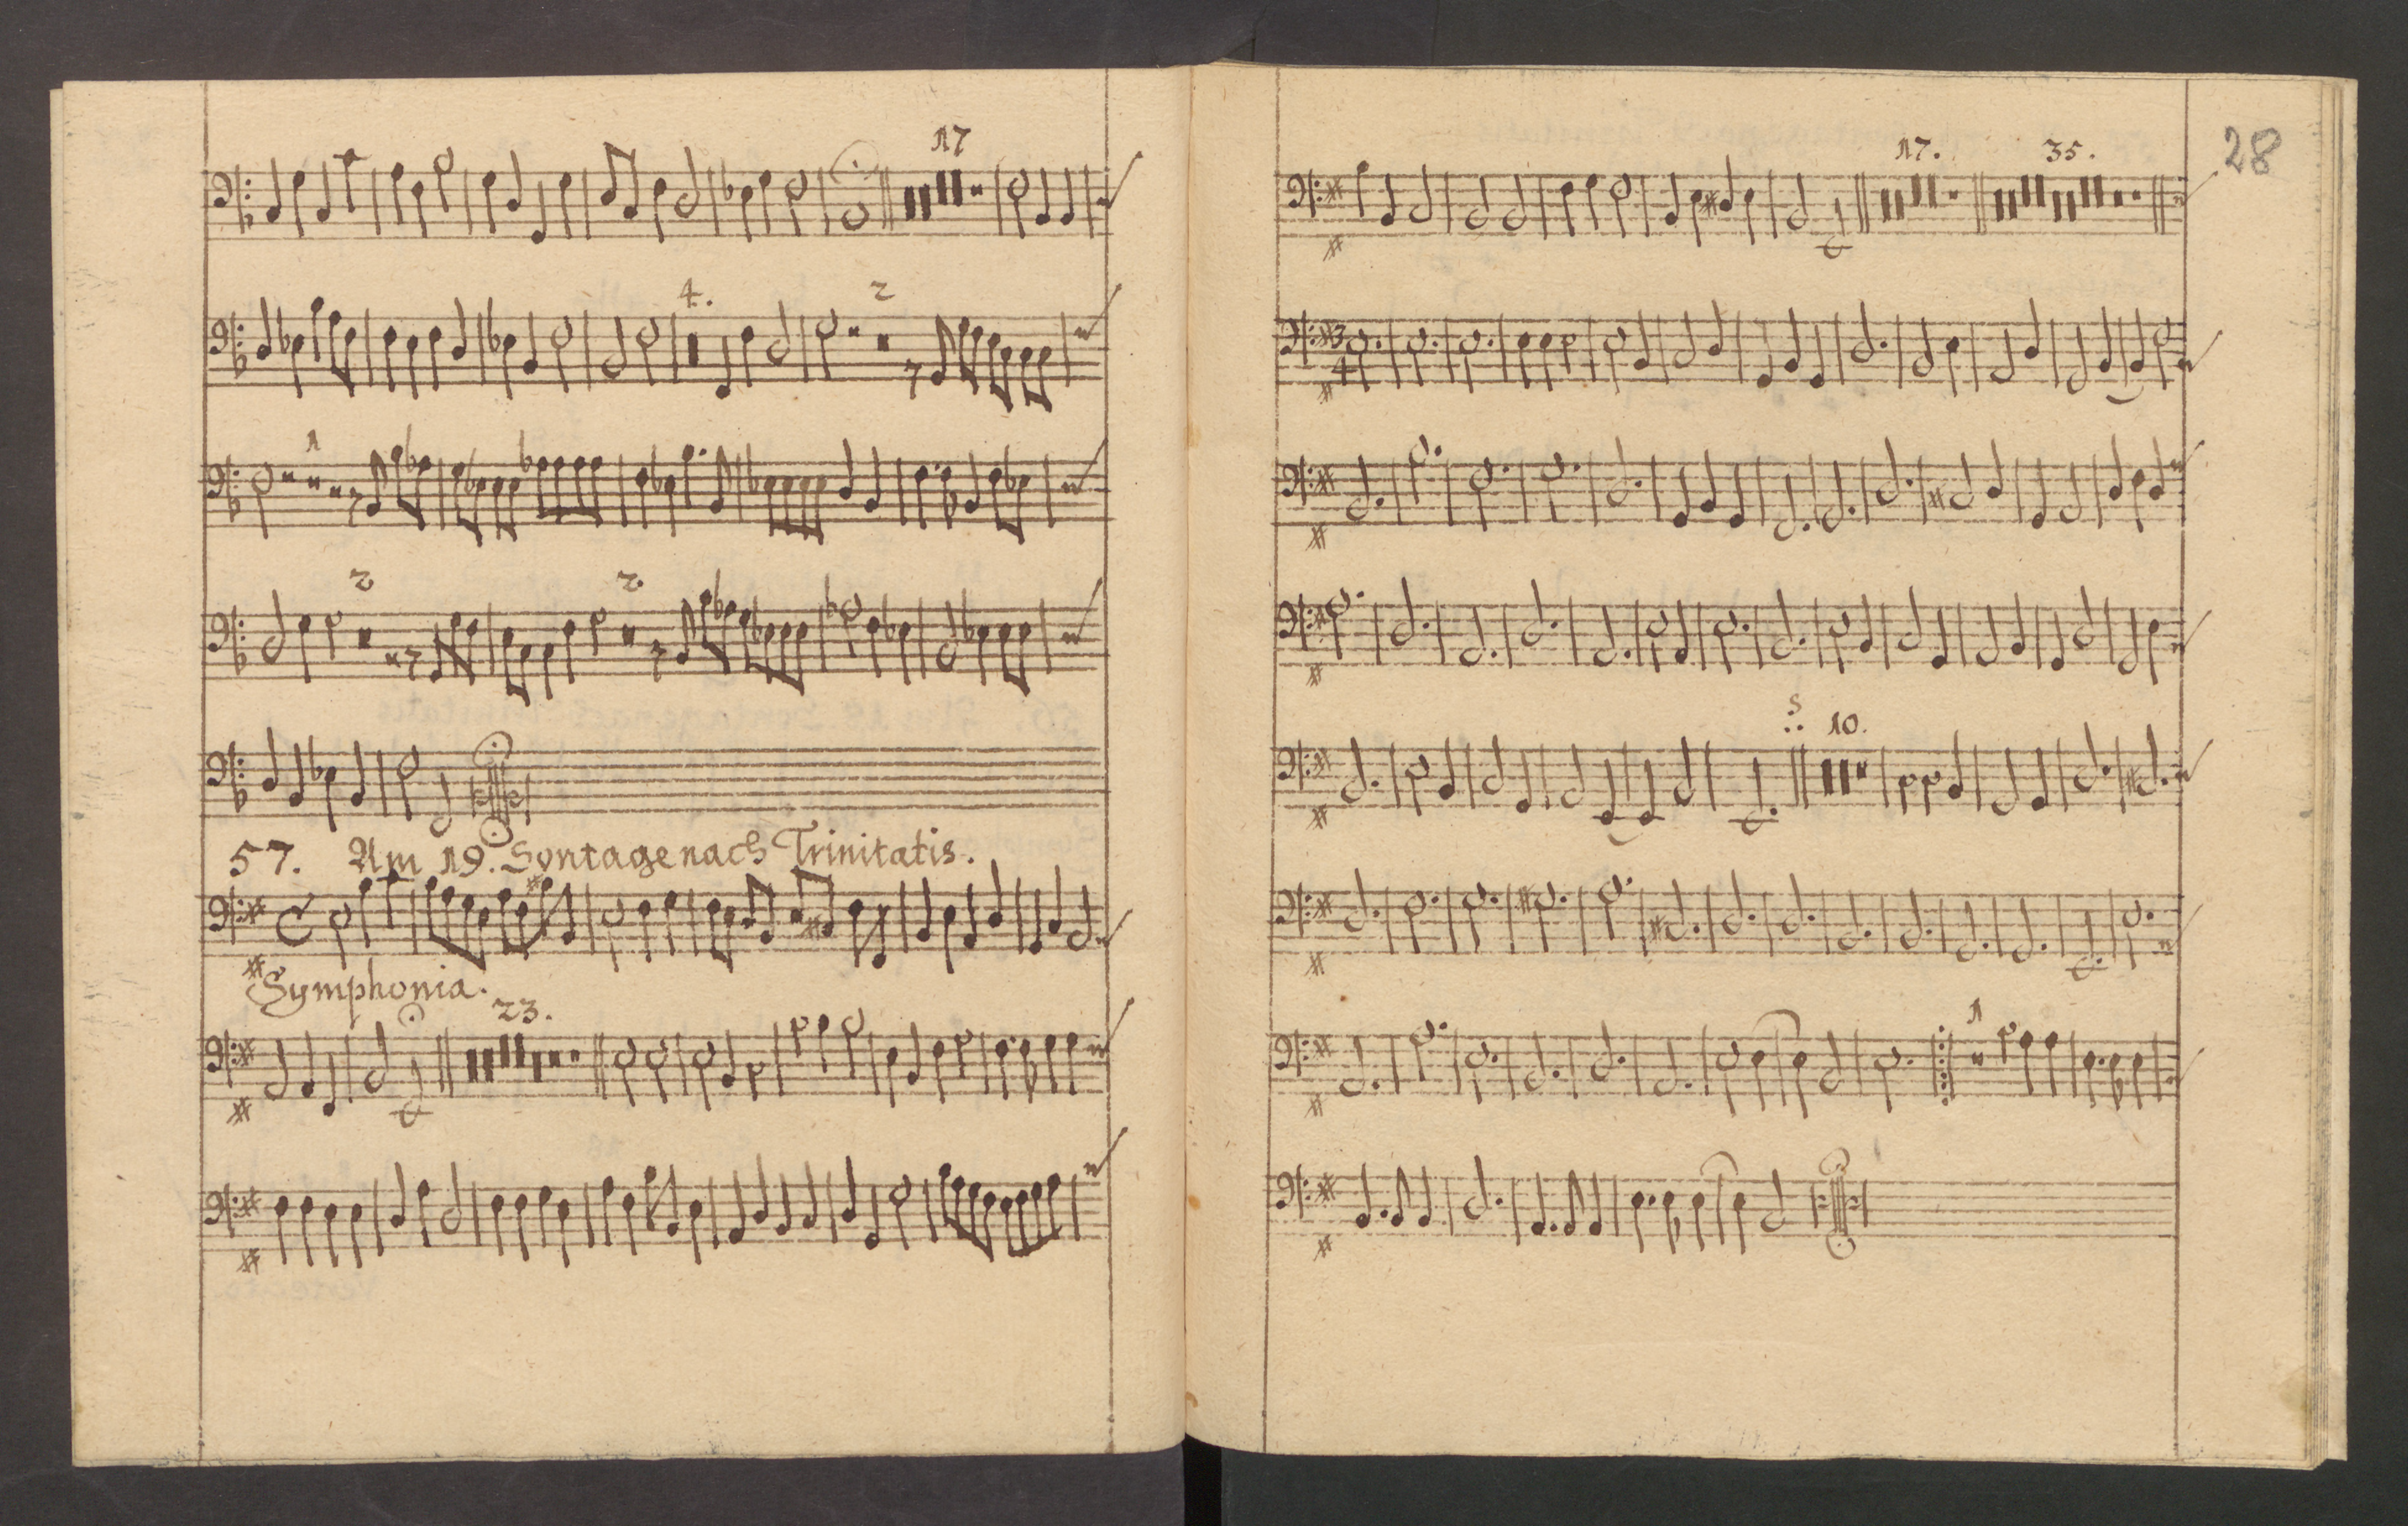 17
4. 2
1
2 2
57. Am 19. Sontage nach Trinitatis.
Symphonia.
23.
28
17. 35.
3
4
S 10.
1